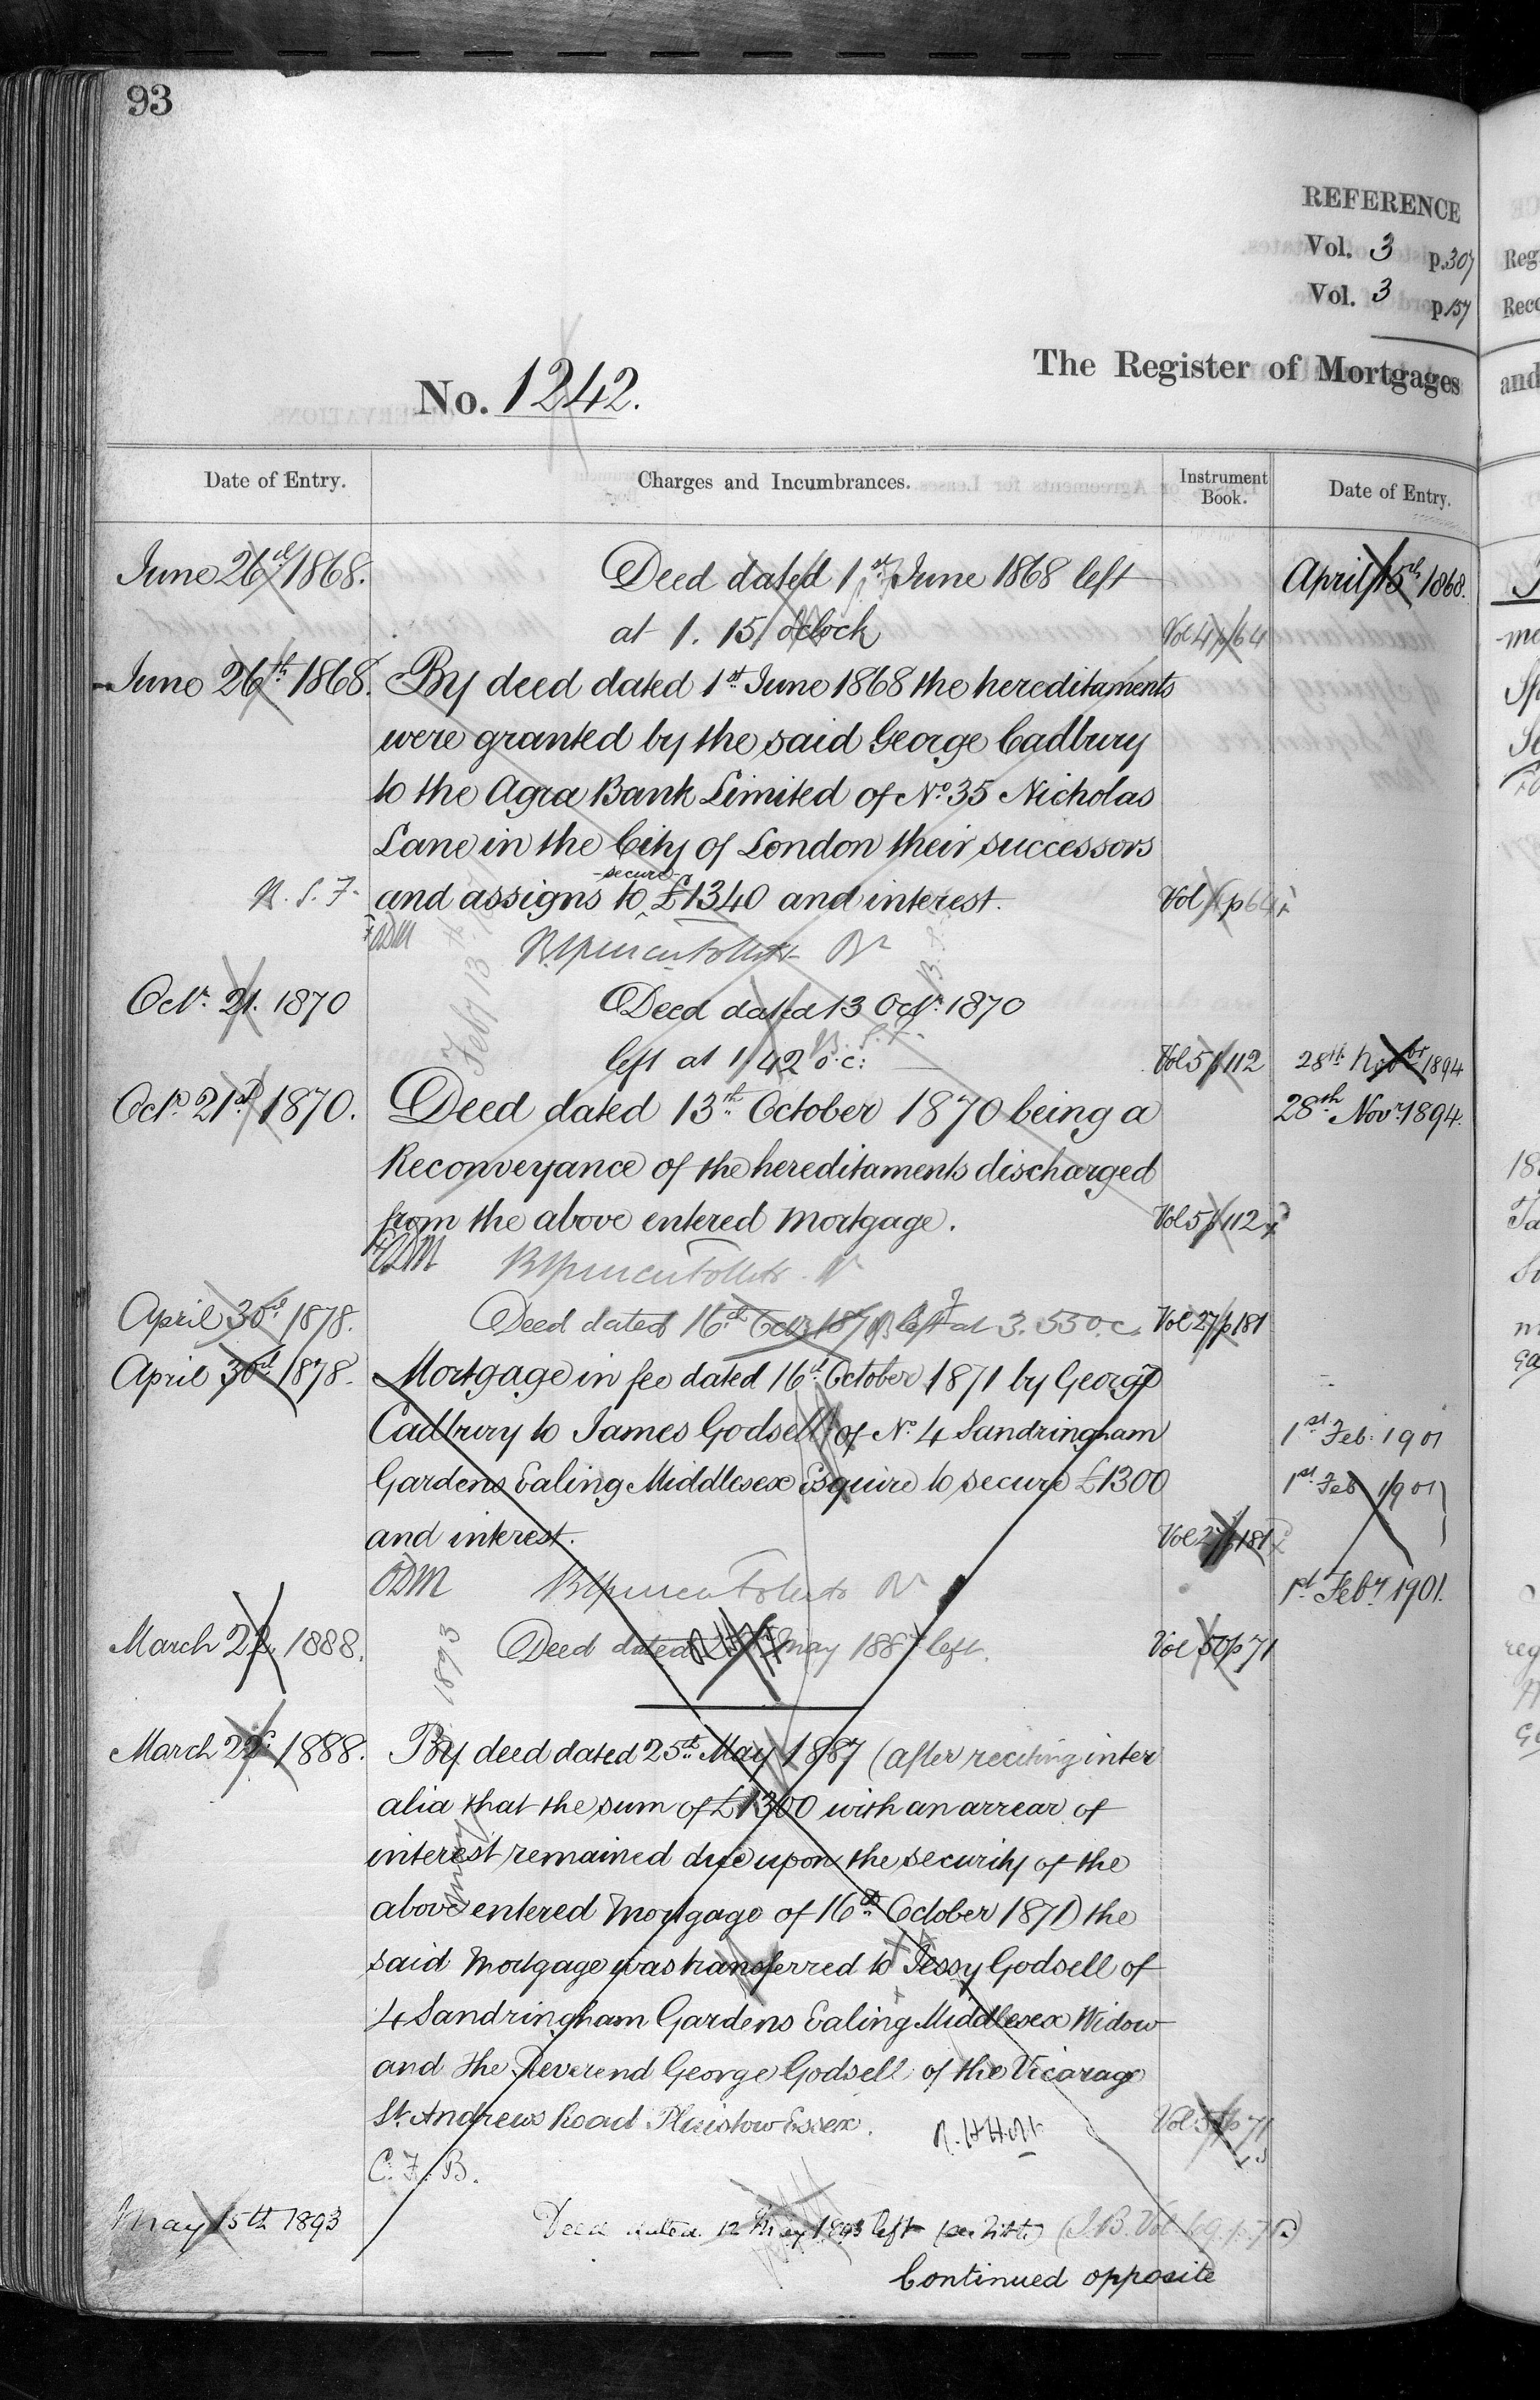 93
REFERENCE
Vol. 3 p. 307
Vol. 3 p. 157
No. 1242.
The Register of Mortgages
Date of Entry. Charges and Incumbrances. Instrument Book. Date of Entry.
June 26th 1868. Deed dated 1st June 1868 left April 15th 1868.
at 1. 15 o'clock Vol 4 p 64
June 26th 1868. By deed dated 1st June 1868 the hereditaments
were granted by the said George Cadbury
to the Agra Bank Limited of No. 35 Nicholas
Lane in the City of London their successors
and assigns to secure £1340 and interest. Vol 4 p 64
Octr. 21. 1870 Deed dated 13 Octr. 1870
left at 1. 42 o.c: Vol 5 p 112 28th Novbr 1894
Octr. 21st 1870. Deed dated 13th October 1870 being a 28th Novr. 1894.
Reconveyance of the hereditaments discharged
from the above entered Mortgage. Vol 5 p 112
April 30th 1878. Deed dated 16th Octr 1871 left at 3. 55 o.c. Vol 27 p 181
April 30th 1878. Mortgage in fee dated 16th October 1871 by George
Cadbury to James Godsell of No. 4 Sandringham 1st Feb: 1901
Gardens Ealing Middlesex Esquire to secure £1300 1st Feb 1901
and interest. Vol 27 p 181
ODM 1st Feby. 1901.
March 22. 1888. Deed dated 25th May 1887 left. Vol 50 p 71
March 22d 1888. By deed dated 25th May 1887 (after reciting inter
alia that the sum of £1300 with an arrear of
interest remained due upon the security of the
above entered Mortgage of 16th October 1871) the
said Mortgage was transferred to Jessy Godsell of
4 Sandringham Gardens Ealing Middlesex Widow
and the Reverend George Godsell of the Vicarage
St. Andrews Road Plaistow Essex. Vol 50 p 71
C. F. B.
May 15th 1893 Deed dated 12 May 1893 left
Continued opposite